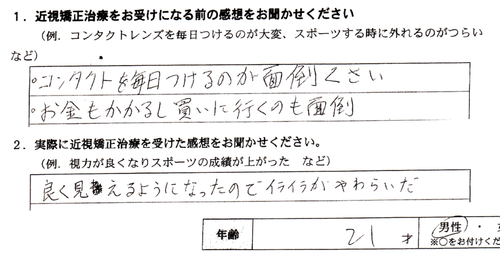 １．近視矯正治療をお受けになる前の感想をお聞かせください
（例．コンタクトレンズを毎日つけるのが大変、スポーツする時に外れるのがつらい
など）
・コンタクトを毎日つけるのが面倒くさい
・お金もかかるし買いに行くのも面倒
２．実際に近視矯正治療を受けた感想をお聞かせください。
（例．視力が良くなりスポーツの成績が上がった　など）
良く見えるようになったのでイライラがやわらいだ
年齢　21才　男性・
※○をお付けくだ